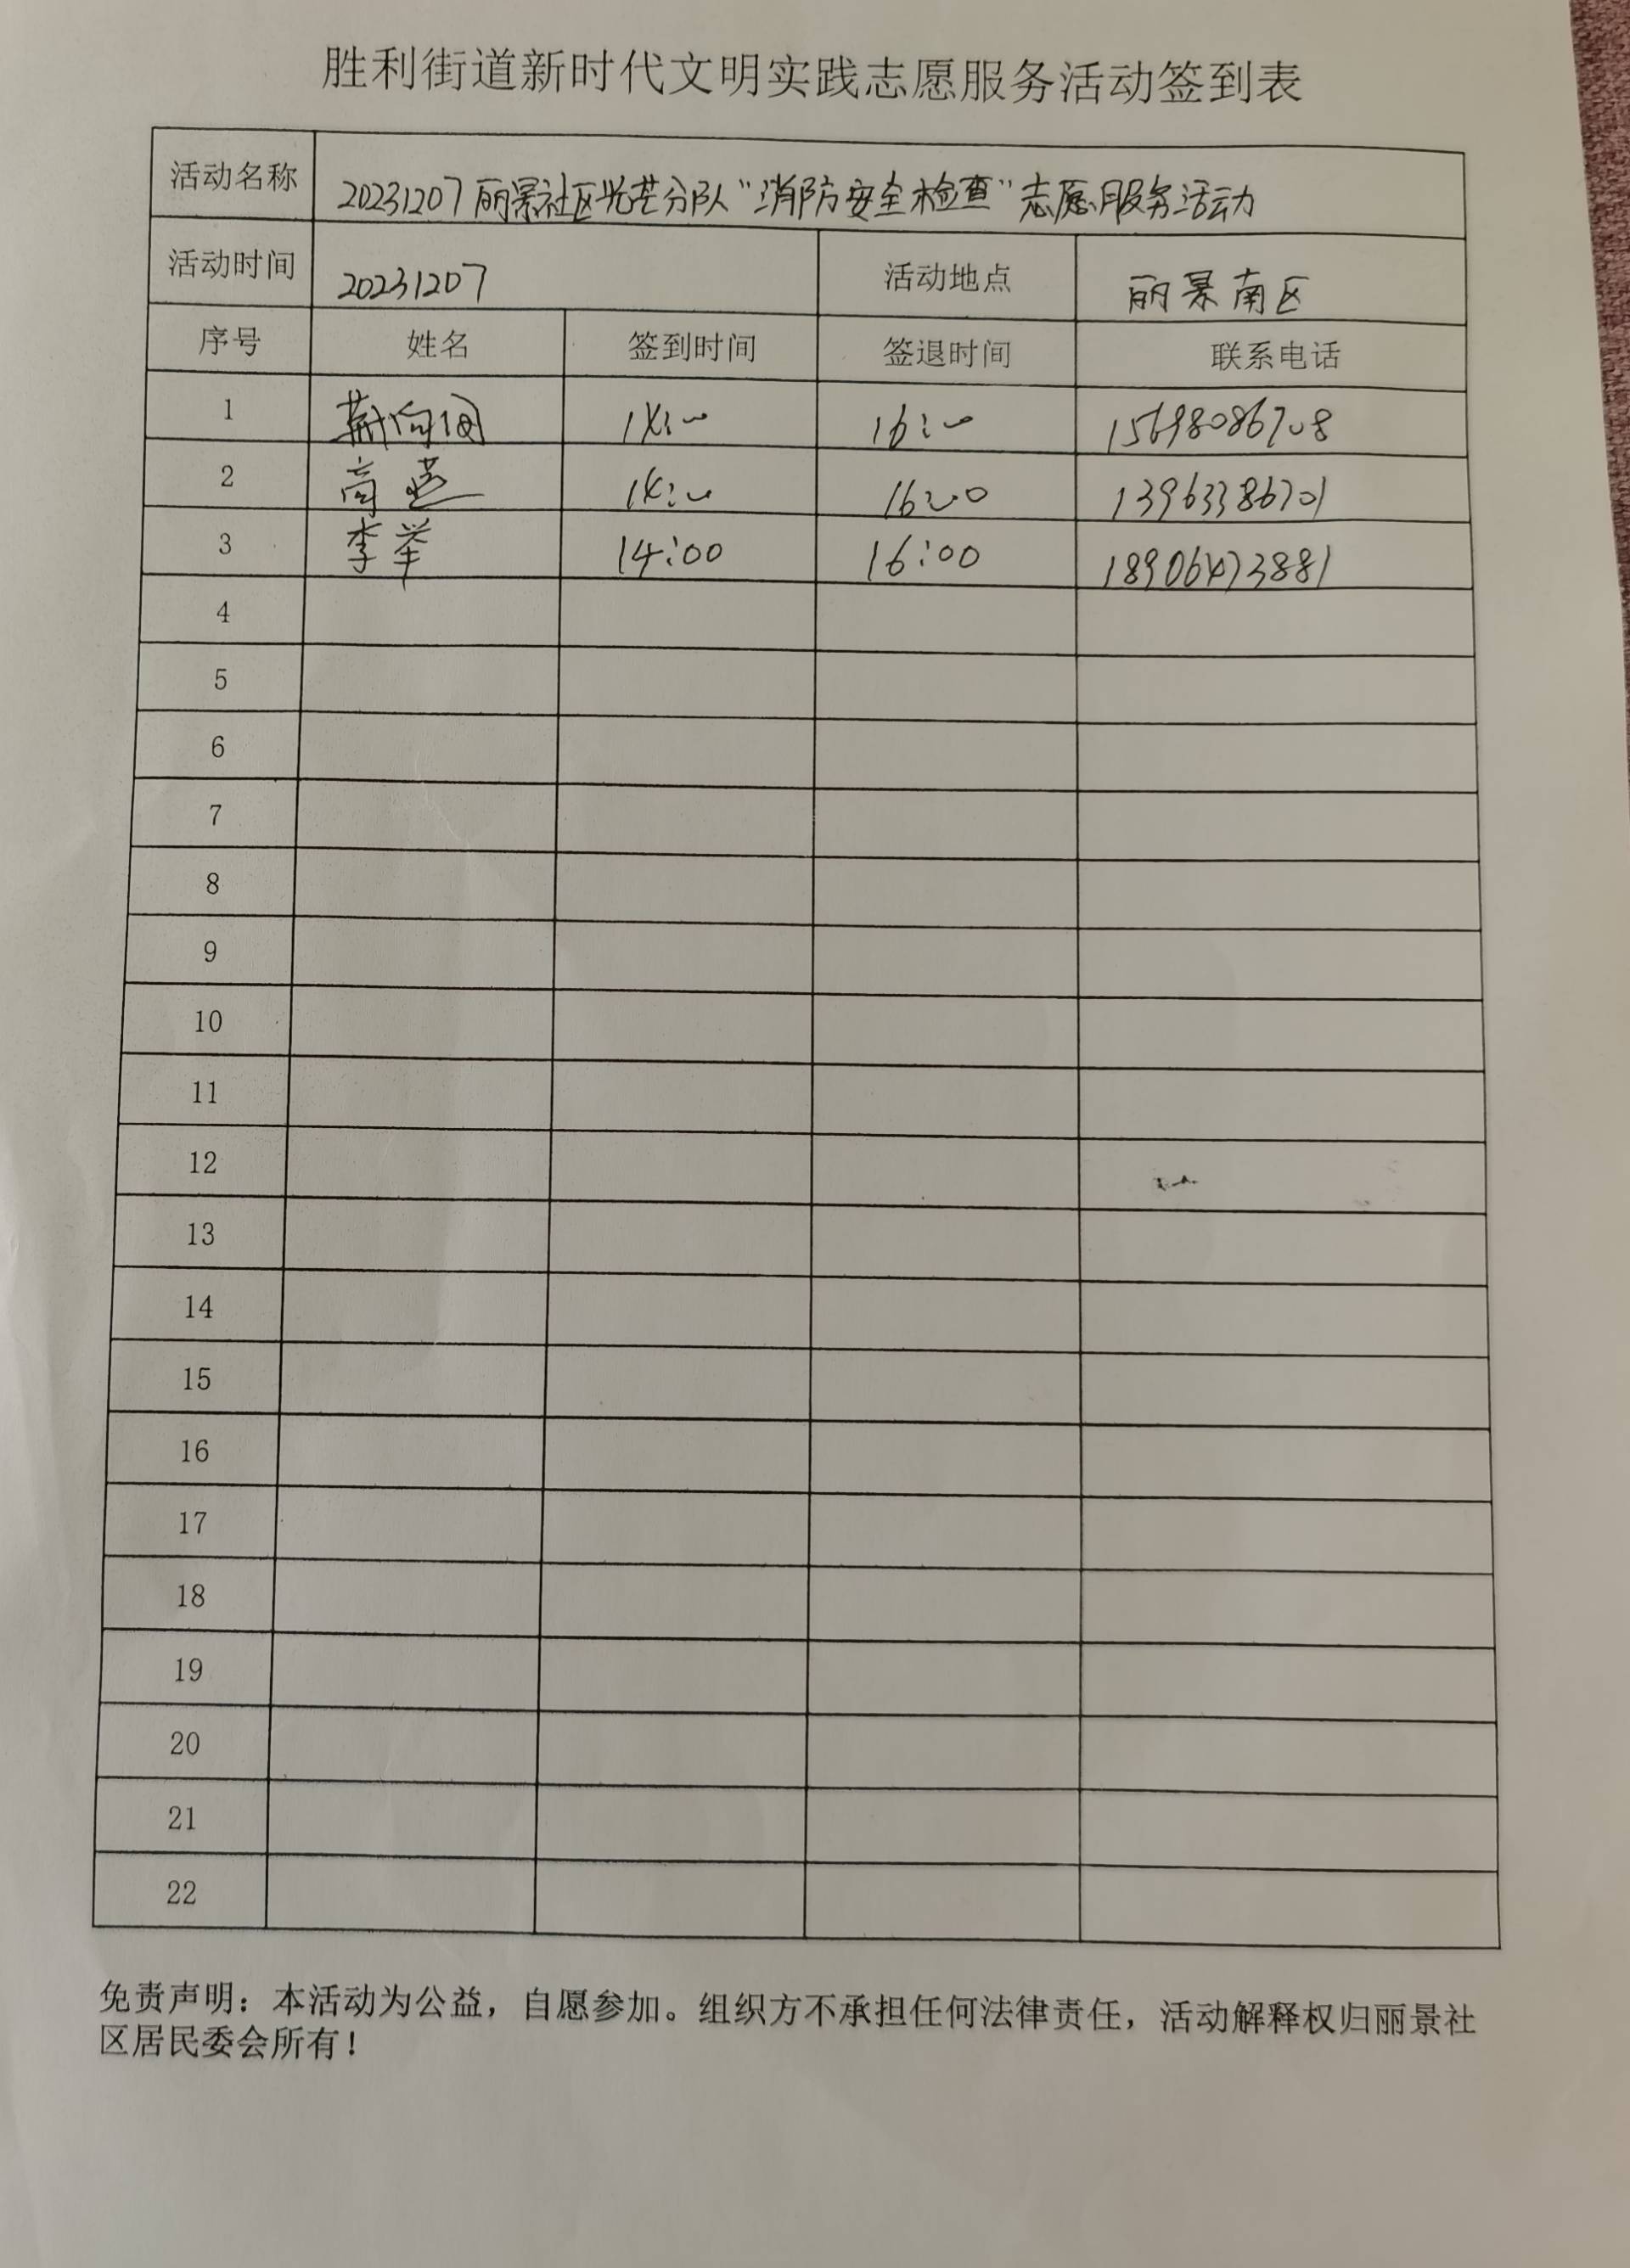 胜利街道新时代文明实践志愿服务活动签到表
活动名称 20231207丽景社区光芒分队“消防安全检查”志愿服务活动
活动时间 20231207 活动地点 丽景南区
序号 姓名 签到时间 签退时间 联系电话
1 14:00 16:00 15698086708
2 高燕 14:00 16:00 13963386701
3 李举 14:00 16:00 18906473881
4
5
6
7
8
9
10
11
12
13
14
15
16
17
18
19
20
21
22
免责声明：本活动为公益，自愿参加。组织方不承担任何法律责任，活动解释权归丽景社
区居民委会所有！